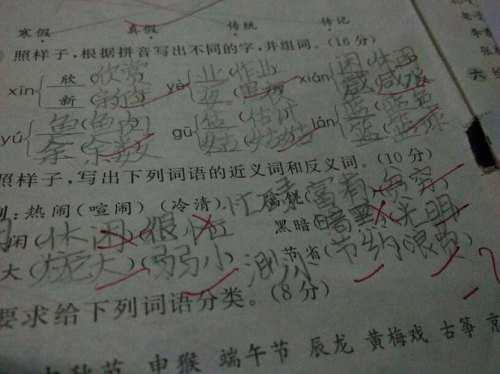 寒假 真假 传统 传记
照样子,根据拼音写出不同的字,并组词。(16分)
xīn 欣(欣赏) yè 业(作业) xián 闲(休闲)
新(新年) 夜(黑夜) 咸(咸淡)
yú 鱼(鱼肉) gū 估(估计) lán 蓝(蓝色)
余(余数) 姑(姑姑) 篮(篮球)
照样子,写出下列词语的近义词和反义词。(10分)
热闹(喧闹)(冷清) (富有)(贫穷)
闲(休闲)(很忙) 忙 黑暗(暗黑)(光明)
大(庞大)(弱小) 节省(节约)(浪费)
要求给下列词语分类。(8分)
中秋节 申猴 端午节 辰龙 黄梅戏 古筝 京